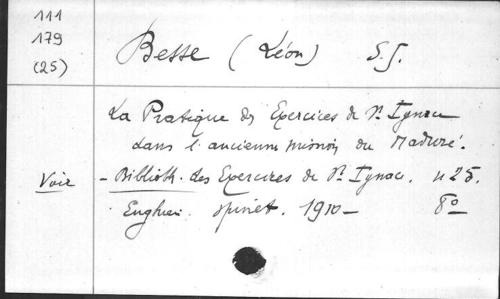 111
179
(25)
Besse (Léon) S.J.
La Pratique des Exercices de St Ignace
dans l'ancienne mission du Maduré.
Voir - Biblioth. des Exercices de St Ignace. n 25.
Enghien. Spinet. 1910 - 8o